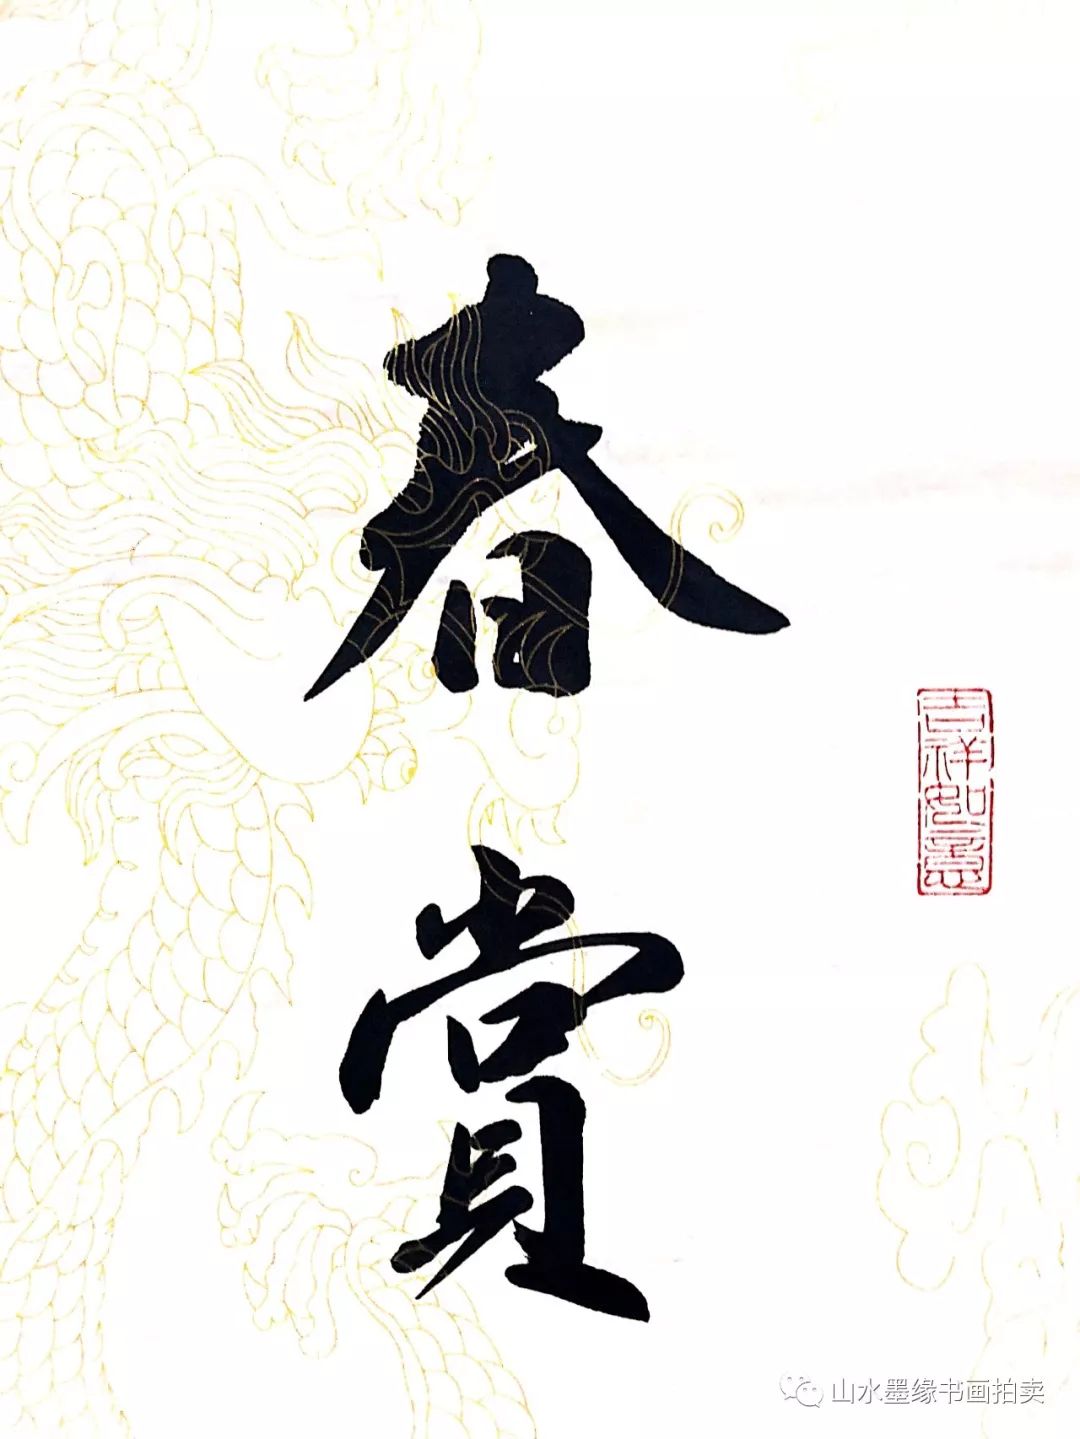 春賞
吉祥如意
山水墨缘书画拍卖